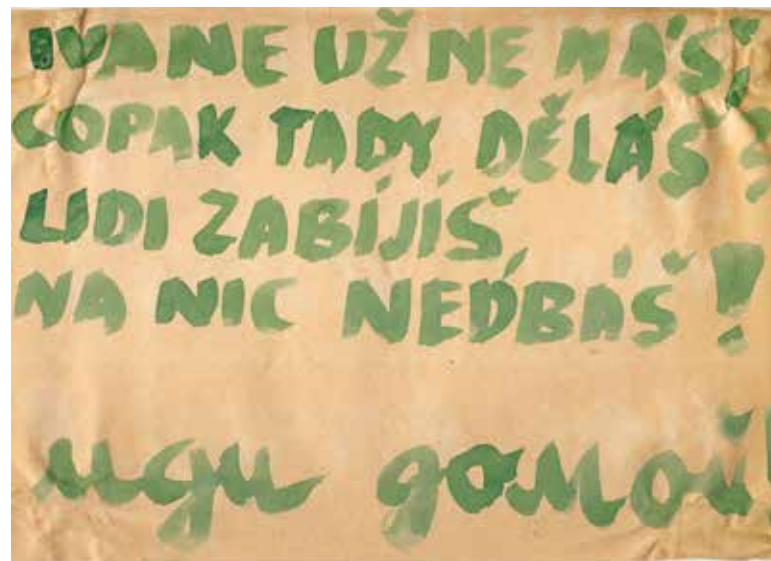 IVANE UŽ NE MÁŠ,
COPAK TADY DĚLÁŠ?
LIDI ZABÍJÍŠ,
NA NIC NEDBÁŠ!
иди домой!